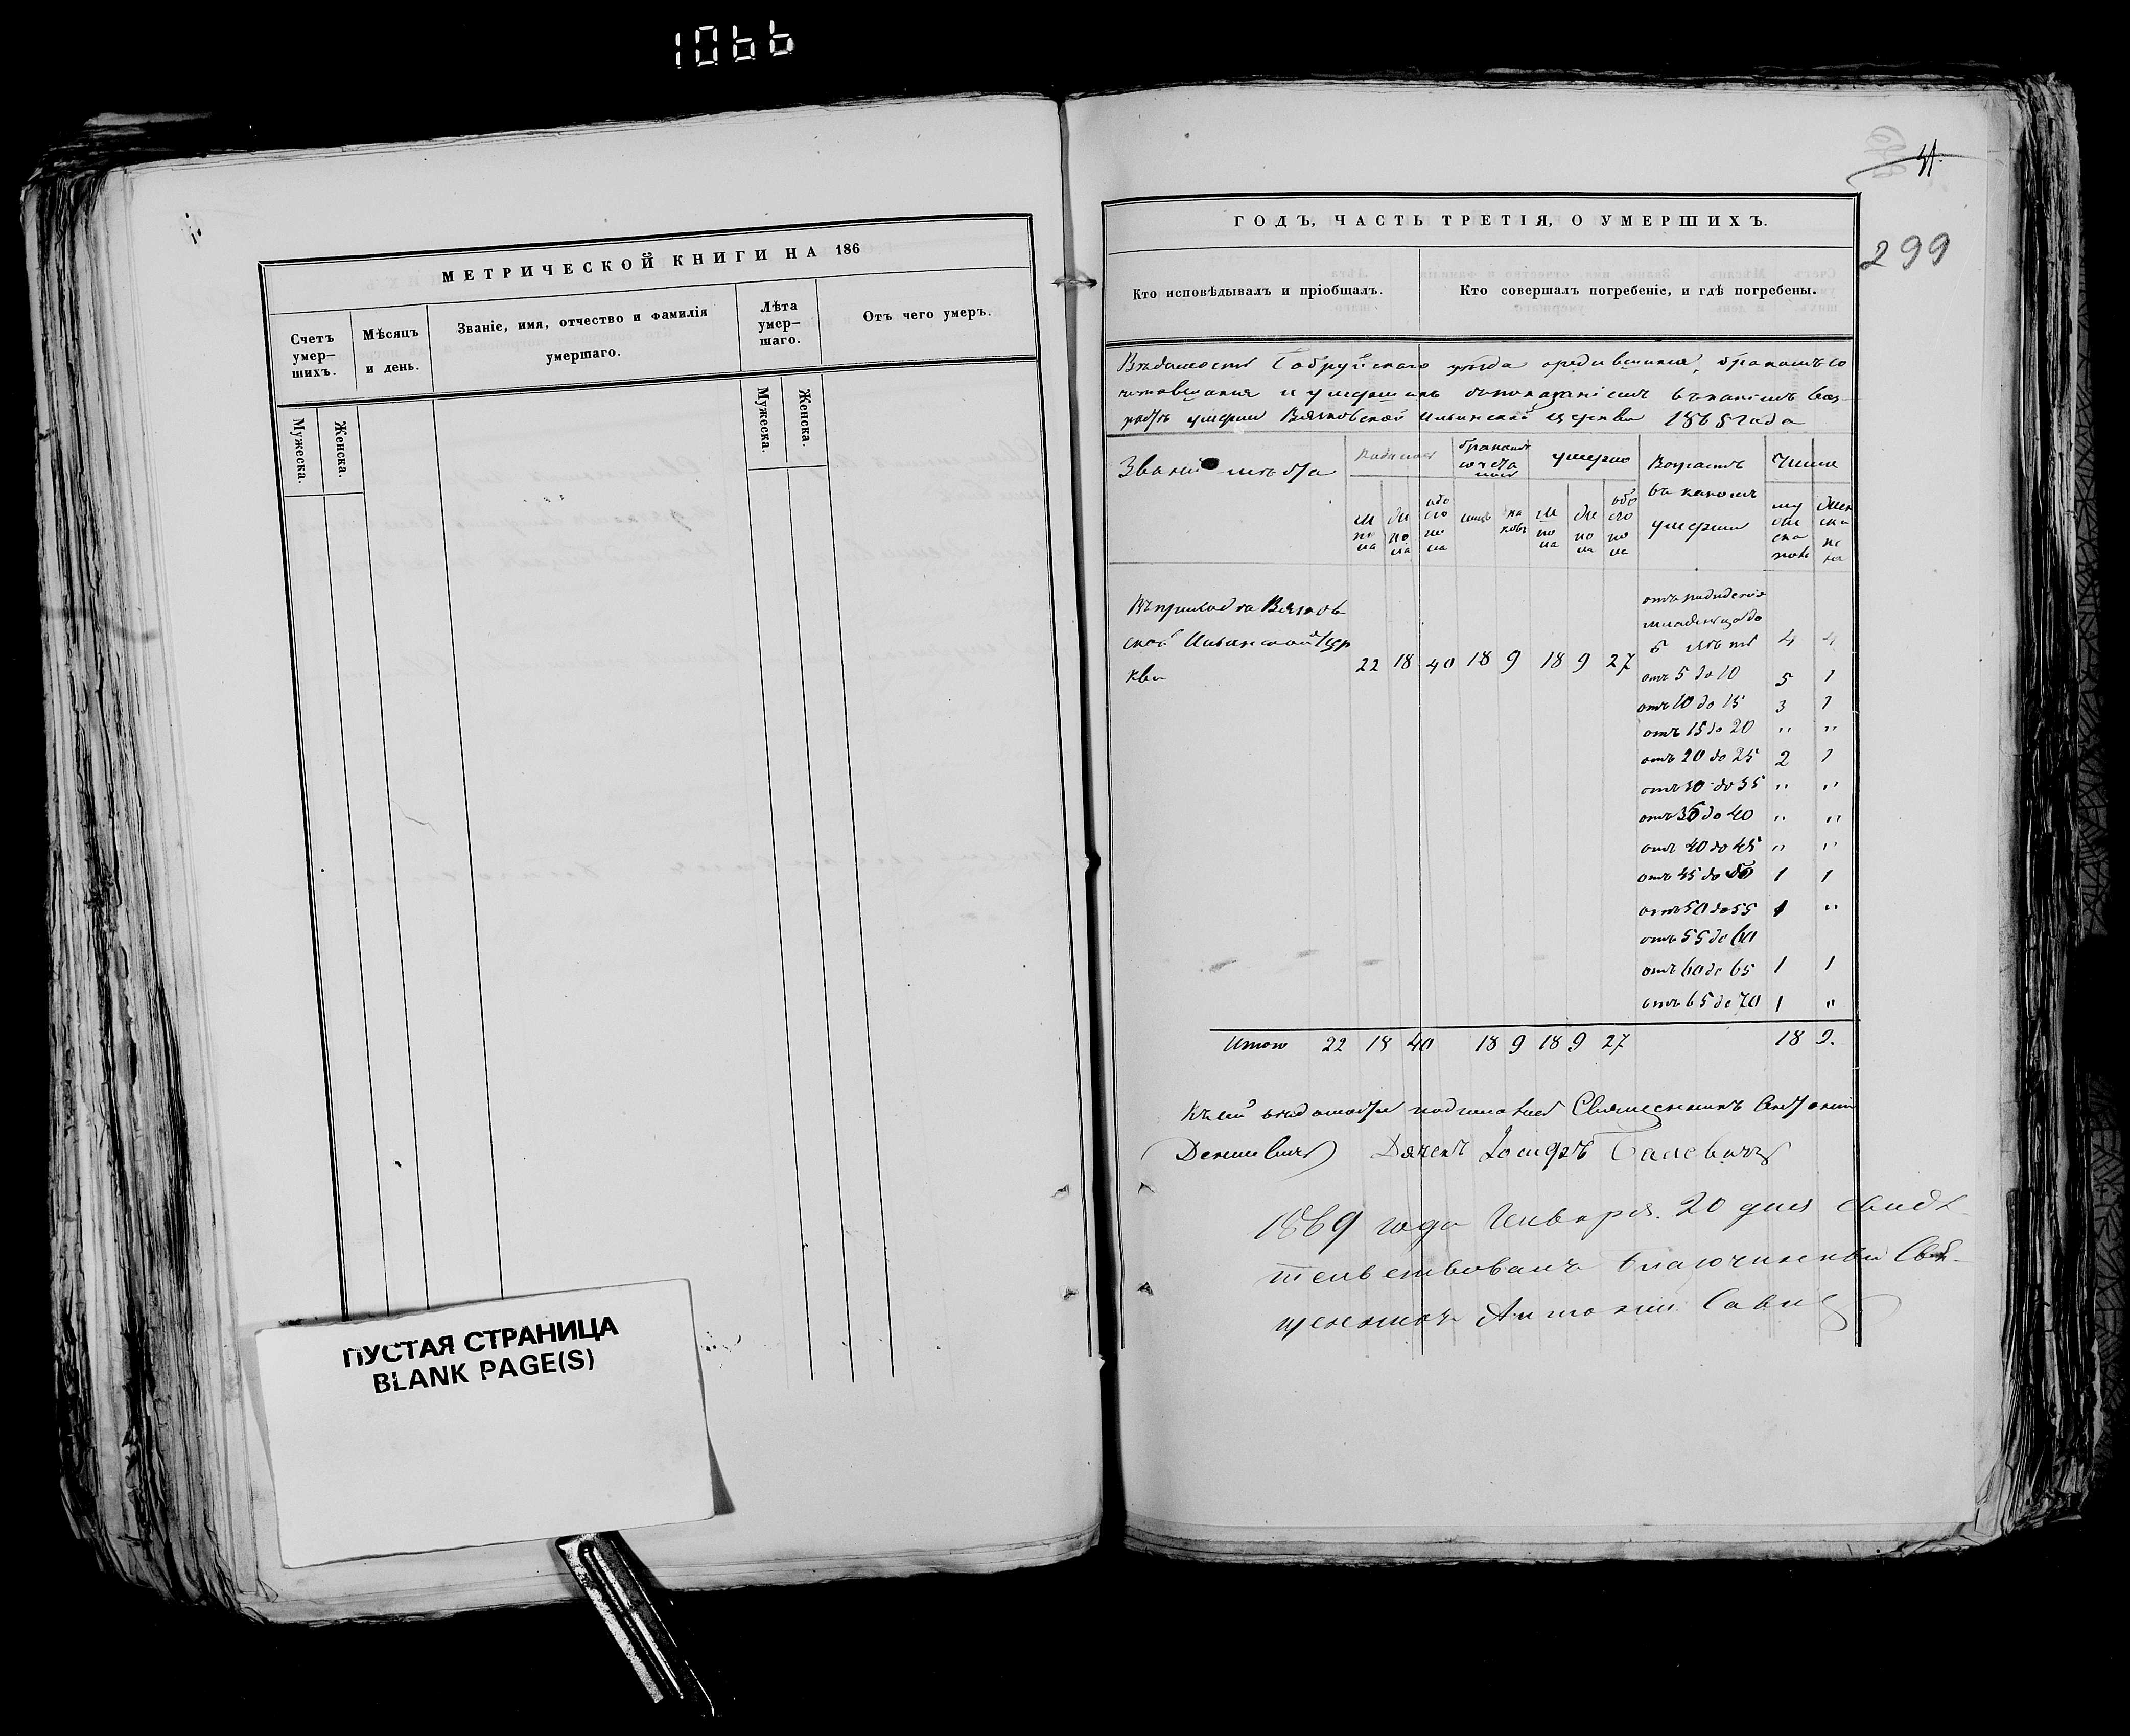 1066
МЕТРИЧЕСКОЙ КНИГИ НА 186
Счетъ умер-шихъ.
Мѣсяцъ и день.
Званіе, имя, отчество и фамилія умершаго.
Лѣта умер-шаго.
Отъ чего умеръ.
Мужеска.
Женска.
Мужеска.
Женска.
ПУСТАЯ СТРАНИЦА
BLANK PAGE(S)
299
ГОДЪ, ЧАСТЬ ТРЕТІЯ, О УМЕРШИХЪ.
Кто исповѣдывалъ и пріобщалъ.
Кто совершалъ погребеніе, и гдѣ погребены.
Вѣдомость Бобруйскаго уѣзда о бракомъ со
и умершихъ въ какомъ воз-
умерли Ильинской церкви 1868 года
Званіе мѣста
бракомъ
умерло
Возрастъ
въ какомъ
умерли
Число
Въ приходѣ
ской Ильинской Цер
кви
22 18 40 18 9 18 9 27
отъ рожденія
младенца до
5 лѣтъ 4 4
отъ 5 до 10 5 1
отъ 10 до 15 3 1
отъ 15 до 20 " "
отъ 20 до 25 2 1
отъ 30 до 35 " "
отъ 35 до 40 " "
отъ 40 до 45 " "
отъ 45 до 50 1 1
отъ 50 до 55 1 "
отъ 55 до 60
отъ 60 до 65 1 1
отъ 65 до 70 1 "
Итого 22 18 40 18 9 18 9 27 18 9.
Къ сей вѣдомости Священникъ Антоній
1869 года Января 20 дня свидѣ-
тельствовалъ Благочинный Свя-
щенникъ Антоній Савич